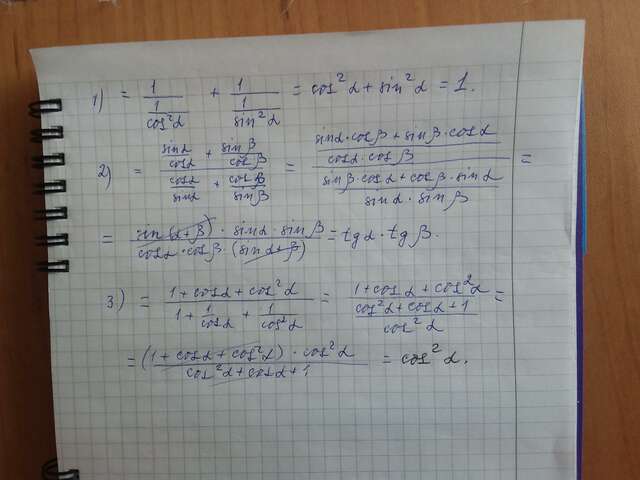 1) = 1/(1/cos²α) + 1/(1/sin²α) = cos²α + sin²α = 1.
2) = (sinα/cosα + sinβ/cosβ)/(cosα/sinα + cosβ/sinβ) = ((sinα·cosβ + sinβ·cosα)/(cosα·cosβ))/((sinβ·cosα + cosβ·sinα)/(sinα·sinβ)) =
= (sin(α+β)·sinα·sinβ)/(cosα·cosβ·(sinα+β)) = tgα·tgβ.
3.) = (1+cosα+cos²α)/(1+1/cosα+1/cos²α) = (1+cosα+cos²α)/((cos²α+cosα+1)/cos²α) =
= ((1+cosα+cos²α)·cos²α)/(cos²α+cosα+1) = cos²α.